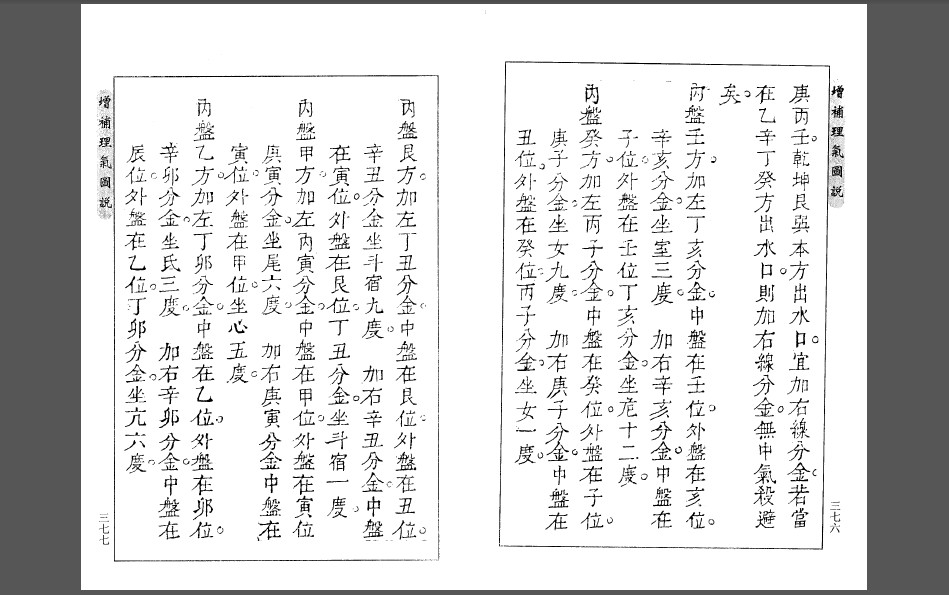 增補理氣圖說
三七六
庚丙壬。乾坤艮巽本方出水口。宜加右線分金。若當
在乙辛丁癸方出水口。則加右線分金。無中氣殺避
矣。
丙盤壬方。加左丁亥分金。中盤在壬位。外盤在亥位。
辛亥分金。坐室三度。　加右辛亥分金。中盤在
子位。外盤在壬位。丁亥分金。坐危十二度。
丙盤癸方。加左丙子分金。中盤在癸位。外盤在子位。
庚子分金。坐女九度。　加右庚子分金。中盤在
丑位。外盤在癸位。丙子分金。坐女一度。
丙盤艮方。加左丁丑分金。中盤在艮位。外盤在丑位。
辛丑分金。坐斗宿九度。　加右辛丑分金。中盤
在寅位。外盤在艮位。丁丑分金。坐斗宿一度。
丙盤甲方。加左丙寅分金。中盤在甲位。外盤在寅位
庚寅分金。坐尾六度。　加右庚寅分金中盤在
寅位。外盤在甲位。坐心五度。
丙盤乙方。加左丁卯分金。中盤在乙位。外盤在卯位。
辛卯分金。坐氐三度。　加右辛卯分金。中盤在
辰位。外盤在乙位。丁卯分金。坐亢六度。
增補理氣圖說
三七七